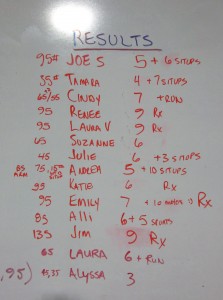 RESULTS
95# JOE S 5 + 6 SITUPS
35# TAMARA 4 + 7 SITUPS
65/55 CINDY 7 + RUN
95 RENEE 9 Rx
95 LAURA V 9 Rx
65 SUZANNE 6
45 Julie 6 + 3 SITUPS
75, ANDREA 5 + 10 SITUPS
95 KATIE 6 Rx
95 EMILY 7 + 10 Rx
85 Alli 6 + 5
135 Jim 9 Rx
65 LAURA 6 + RUN
, 95) 35 ALYSSA 3